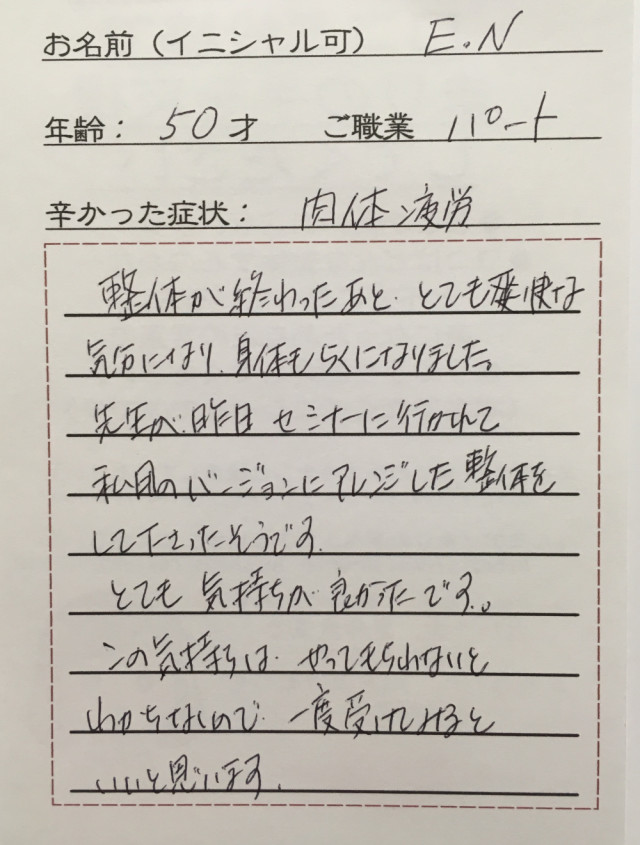 お名前（イニシャル可） E.N
年齢： 50才 ご職業 パート
辛かった症状： 肉体疲労
整体が終わったあと、とても爽快な
気分になり、身体もらくになりました。
先生が昨日セミナーに行かれて
私用のバージョンにアレンジした整体を
して下さったそうです。
とても気持ちが良かったです。
この気持ちは、やってもらわないと
わからないので、一度受けてみると
いいと思います。